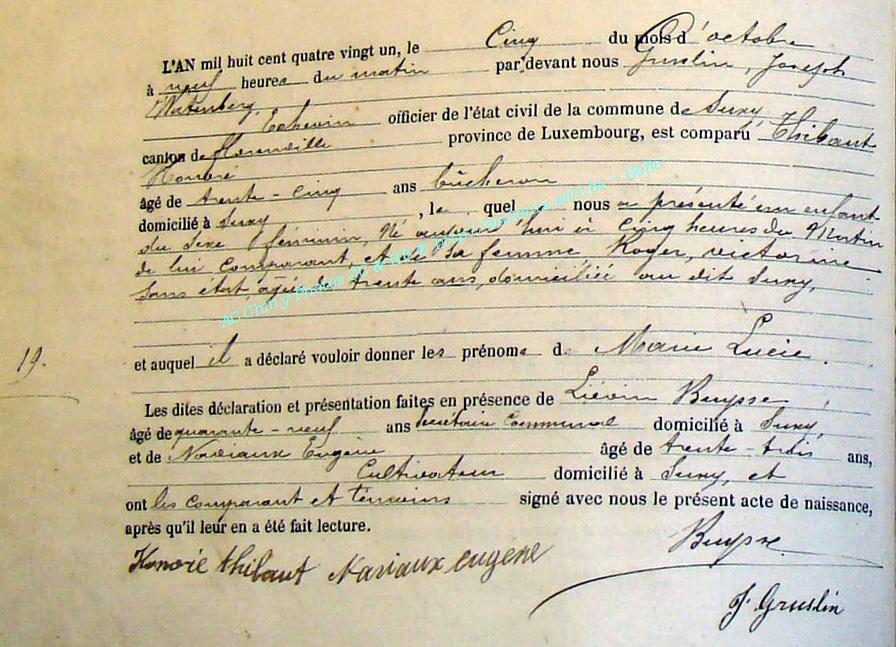 L'AN mil huit cent quatre vingt un, le Cinq du mois d'octobre
à neuf heures du matin par devant nous Gruslin, Joseph
Echevin officier de l'état civil de la commune de Suxy,
canton de Florenville province de Luxembourg, est comparu Thibaut
Honoré
âgé de trente-cinq ans bûcheron
domicilié à Suxy, le quel nous a présenté un enfant
du sexe féminin, né aujourd'hui à Cinq heures du Matin
de lui comparant, et de sa femme, Roger, victorine
sans état, agée de trente ans, domiciliée au dit Suxy,
19. et auquel il a déclaré vouloir donner les prénoms de Marie Lucie.
Les dites déclaration et présentation faites en présence de Liévin Buysse,
âgé de quarante-neuf ans Secrétaire Communal domicilié à Suxy,
et de Naviaux Eugène âgé de trente-trois ans,
Cultivateur domicilié à Suxy, et
ont les comparant et témoins signé avec nous le présent acte de naissance,
après qu'il leur en a été fait lecture.
Honoré thibaut Naviaux eugene Buysse
J. Gruslin